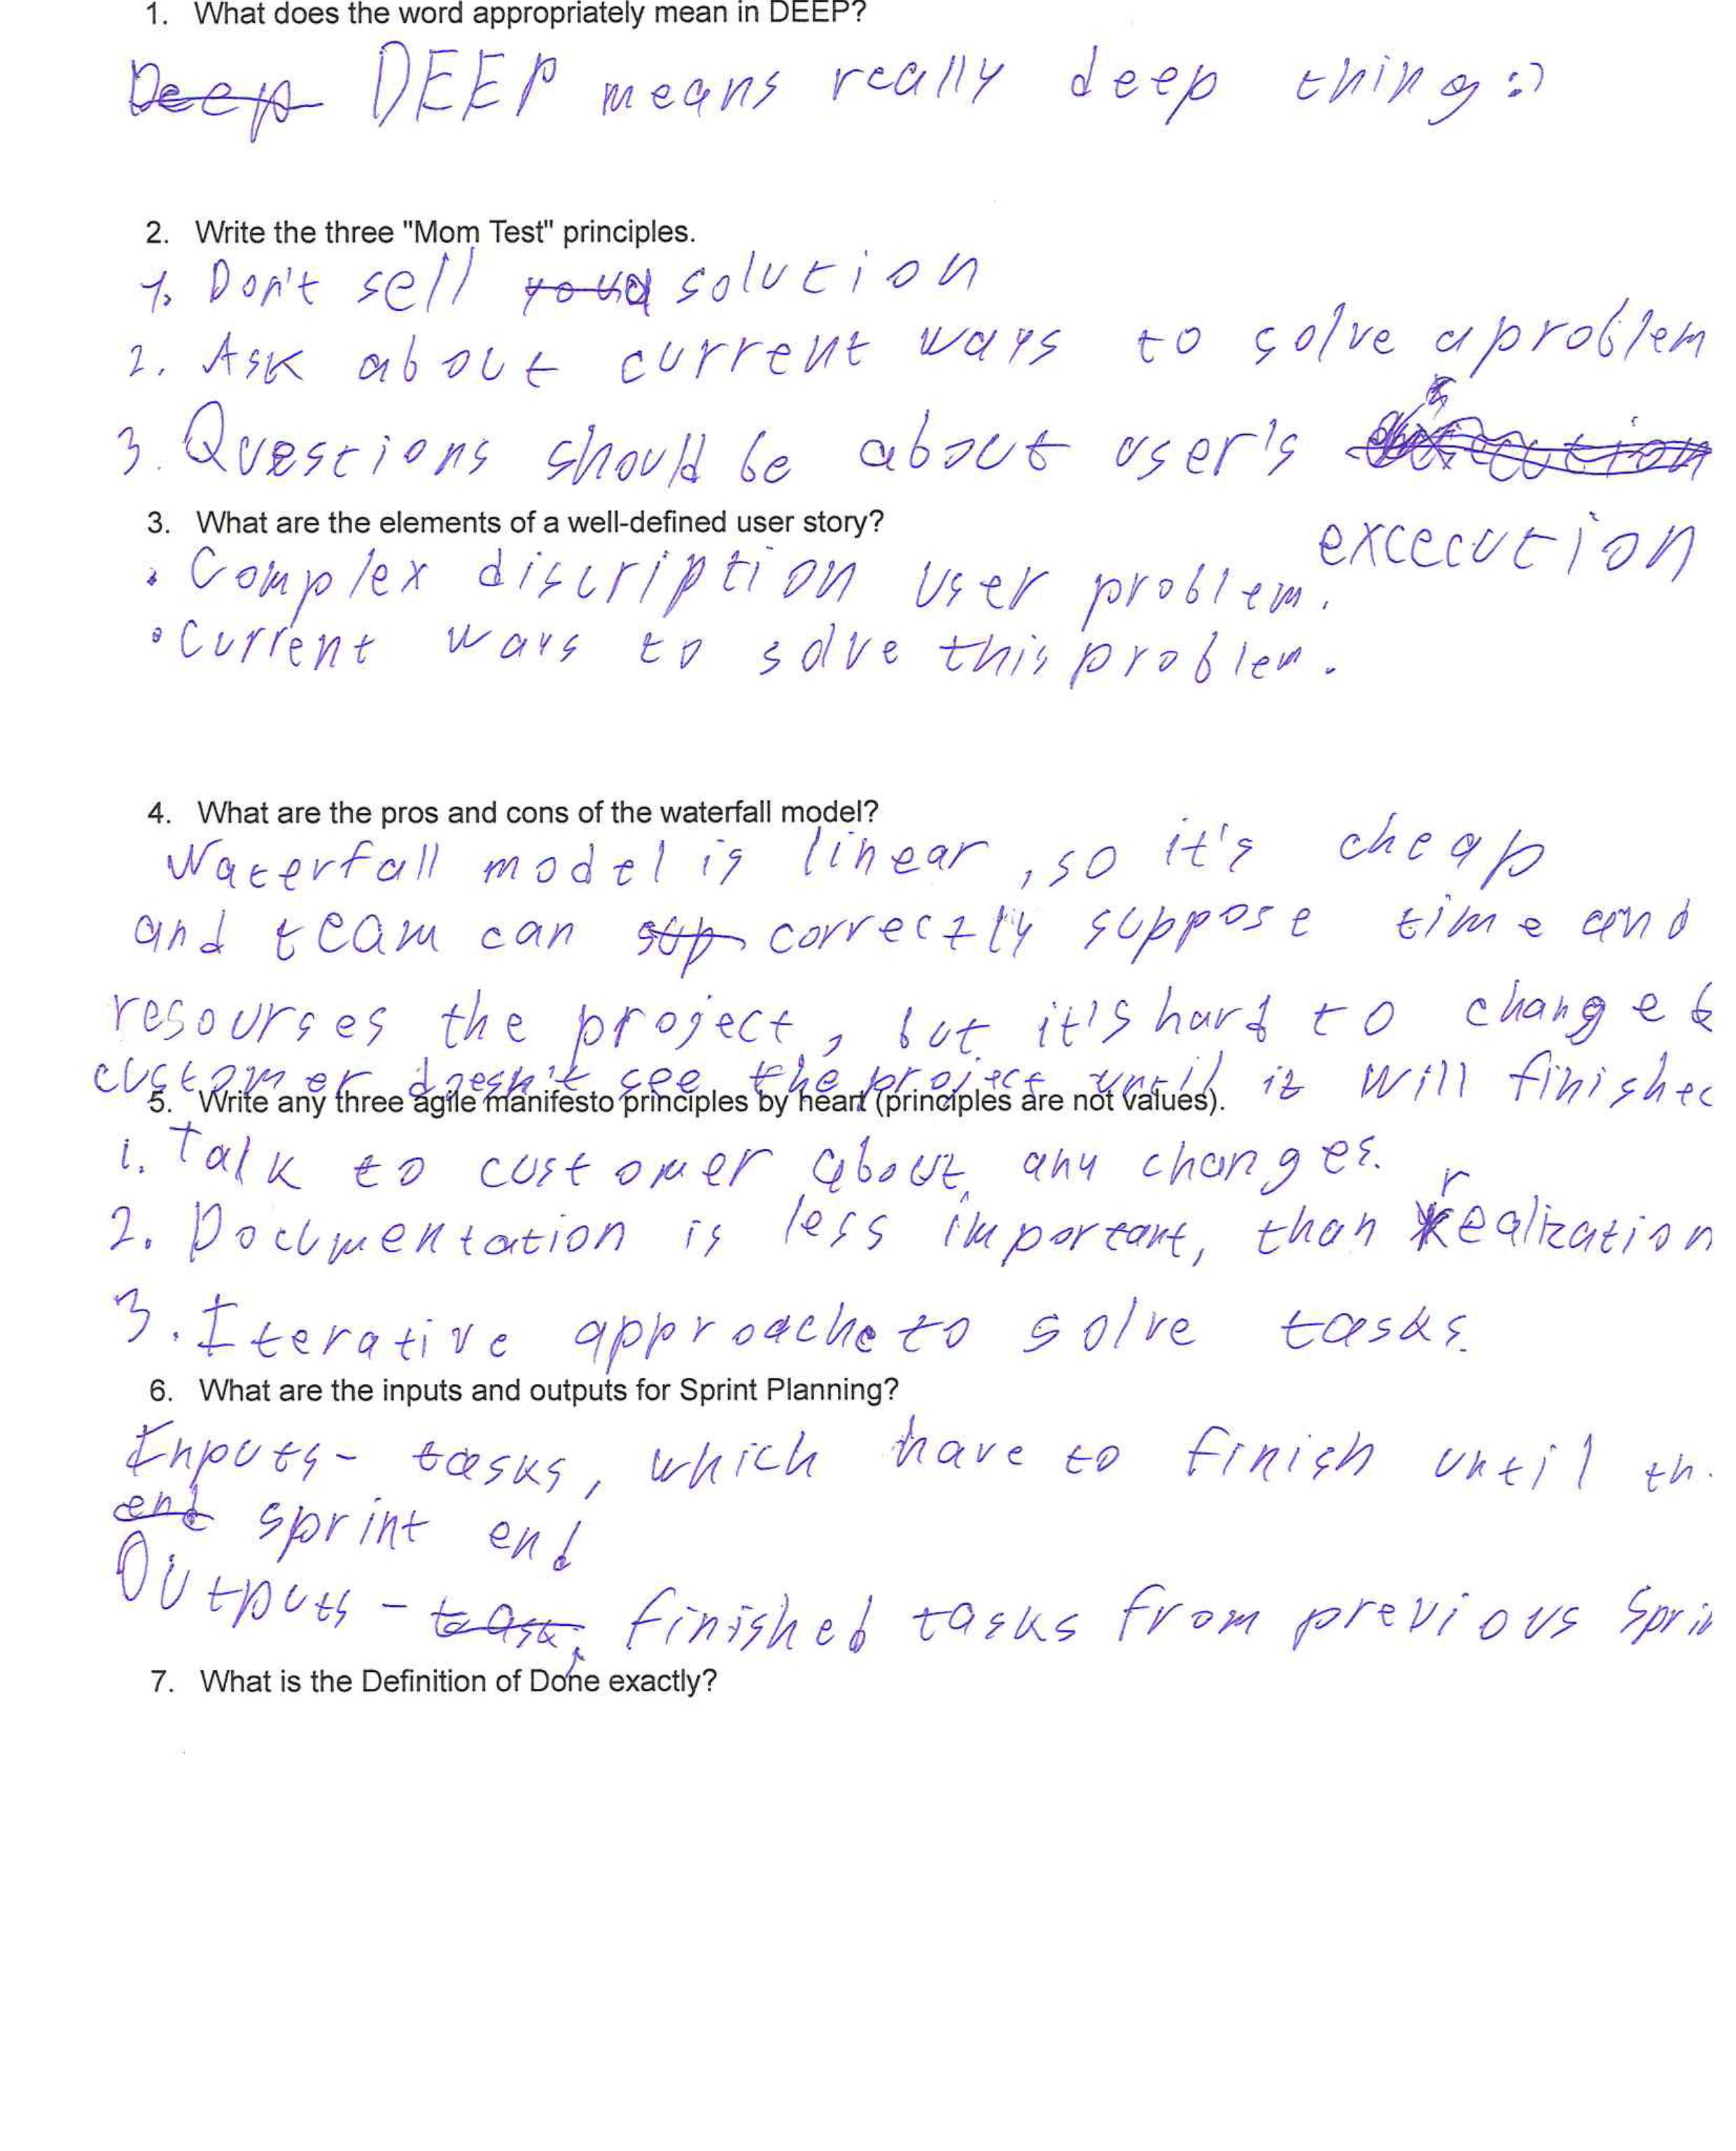 1. What does the word appropriately mean in DEEP?
Deep DEEP means really deep thing :)
2. Write the three "Mom Test" principles.
1. Don't sell your solution
2. Ask about current ways to solve a problem
3. Questions should be about user's
excecution
3. What are the elements of a well-defined user story?
• Complex discription user problem.
• Current ways to solve this problem.
4. What are the pros and cons of the waterfall model?
Waterfall model is linear, so it's cheap
and team can sup correctly suppose time and
resourses the project, but it's hard to change &
customer doesn't see the project until it will finished
5. Write any three agile manifesto principles by heart (principles are not values).
1. Talk to customer about any changes.
2. Documentation is less important, than realization
3. Iterative approache to solve tasks.
6. What are the inputs and outputs for Sprint Planning?
Inputs - tasks, which have to finish until th
end sprint end
Outputs - task, finished tasks from previous sprin
7. What is the Definition of Done exactly?